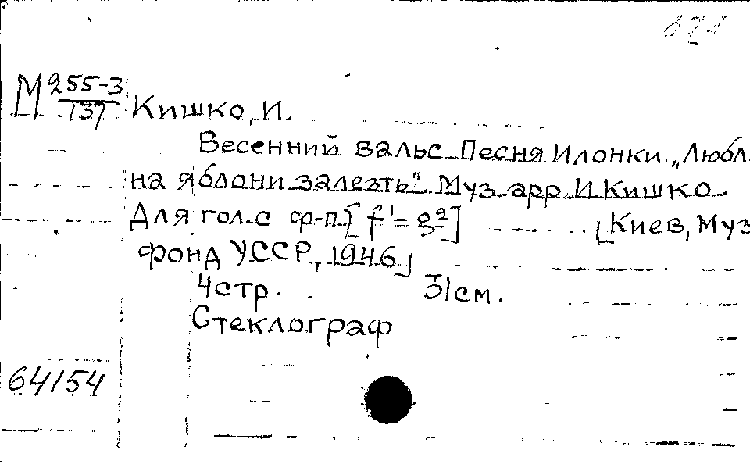 М 255-3
137
Кишко, И.
Весенний вальс Песня Илонки „Любл
на яблони залезть" Муз. арр. И Кишко
Для гол. с ф-п. [f¹ = g²] [Киев, Муз
фонд УССР, 1946]
4 стр. 31 см.
Стеклограф
64154